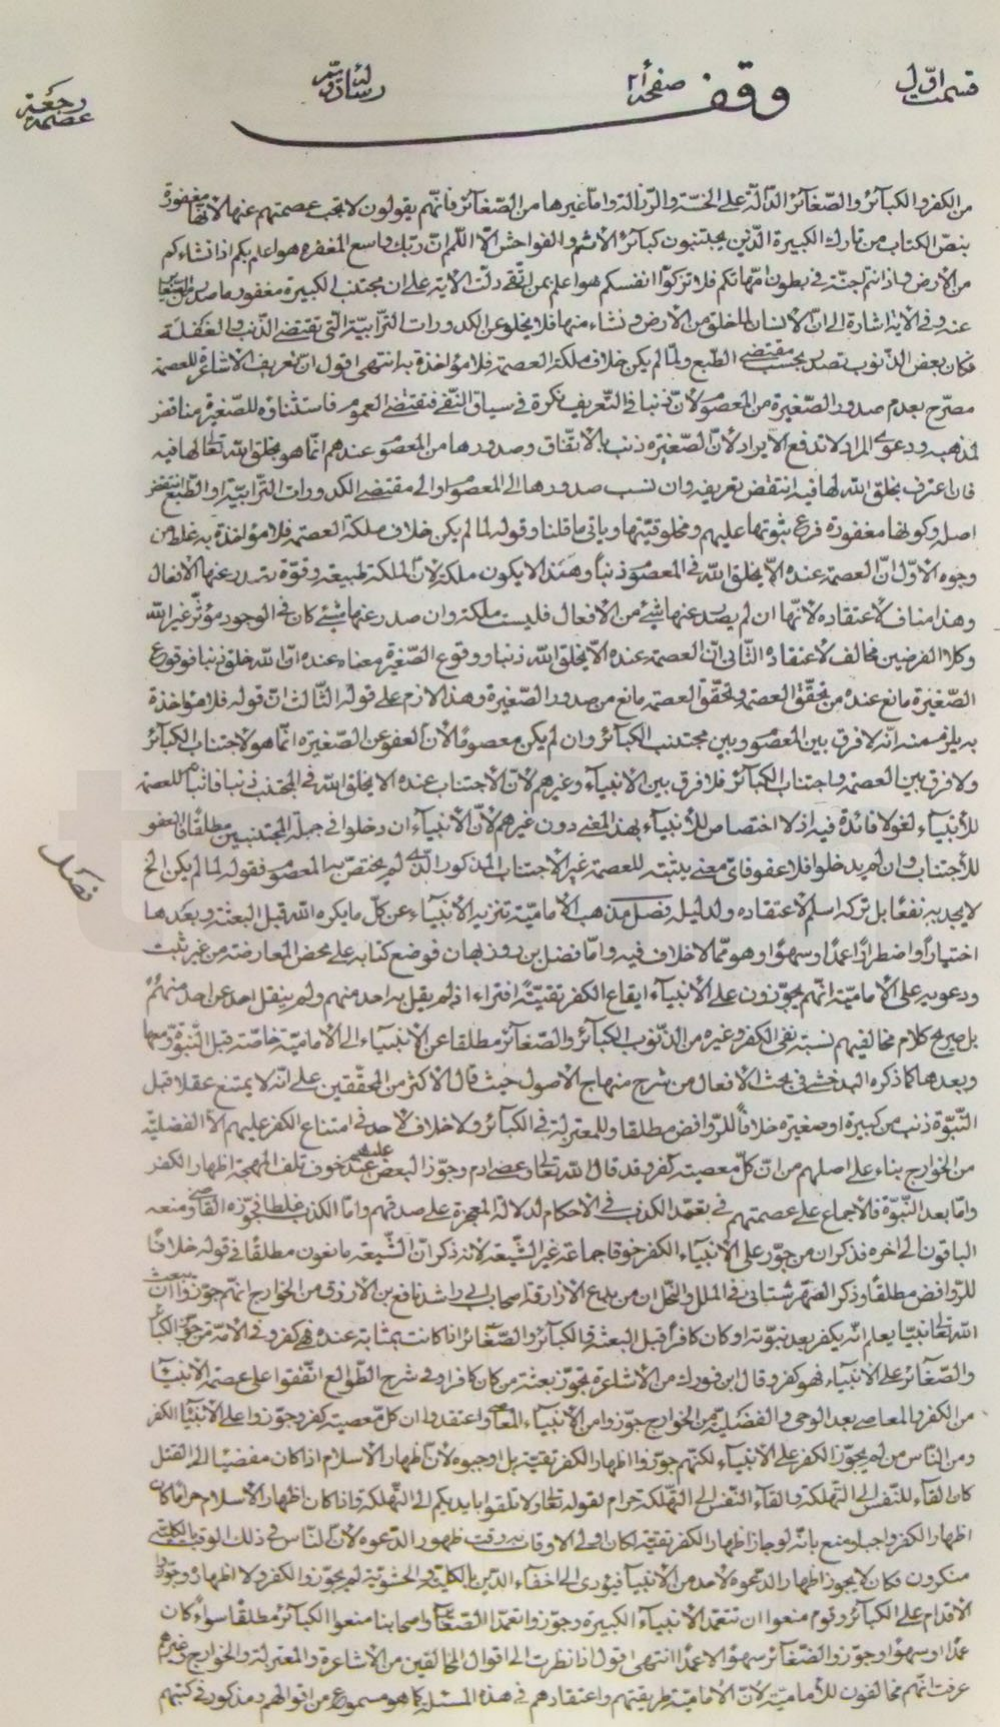 قسمت اول
صفحه ٢١
وقف
رسالة
رجعة
عصمة
من الكفر والكبائر والصغائر الدالة على الخسة والرذالة واما غيرها من الصغائر فانهم يقولون لا يجب عصمتهم عنها لانها مغفورة
بنص الكتاب من تارك الكبيرة الذين يجتنبون كبائر الاثم والفواحش الا اللمم ان ربك واسع المغفرة هو اعلم بكم اذ انشاءكم
من الارض واذ انتم اجنة في بطون امهاتكم فلا تزكوا انفسكم هو اعلم بمن اتقى دلت الاية على ان مجتنب الكبيرة مغفور ما صدر من الصغاير
عنه وفي الاية اشارة الى ان الانسان لما خلق من الارض ونشاء منها فلا يخلو عن الكدورات الترابية التي تقتضي الذنب والغفلة
فكان بعض الذنوب تصدر بحسب مقتضى الطبع ولما لم يكن خلاف ملكة العصمة فلا مؤاخذة به انتهى اقول ان تعريف الاشاعرة للعصمة
مصرح بعدم صدور الصغيرة من المعصوم لان ذنبا في التعريف نكرة في سياق النفى فتقتضى العموم فاستثناؤه للصغيرة مناقض
لمذهبه ودعوى المراد لا تدفع الايراد لان الصغيرة ذنب بالاتفاق وصدورها من المعصوم عندهم انما هو بخلق الله تعالى لها فيه
فان اعترف بخلق الله لها فيه انتقض تعريفه وان نسب صدورها الى المعصوم او الى مقتضى الكدورات الترابية او الطبع انتقض
اصله وكونها مغفورة فرع ثبوتها عليهم ومخلوقيتها وياتى ما قلنا وقوله لما لم يكن خلاف ملكة العصمة فلا مؤاخذة به غلط من
وجوه الاول ان العصمة عنده الا يخلق الله في المعصوم ذنبا وهذا لا يكون ملكة لان الملكة طبيعة وقوة تصدر عنها الافعال
وهذا مناف لاعتقاده لانها ان لم يصدر عنها شئ من الافعال فليست ملكة وان صدر عنها شئ كان في الوجود مؤثر غير الله
وكلا الفرضين مخالف لاعتقاده الثانى ان العصمة عنده الا يخلق الله ذنبا ووقوع الصغيرة معناه عنده ان الله خلق ذنبا فوقوع
الصغيرة مانع عنده من تحقق العصمة وتحقق العصمة مانع من صدور الصغيرة وهذا لازم على قوله الثالث ان قوله فلا مؤاخذة
به يلزم منه انه لا فرق بين المعصوم وبين مجتنب الكبائر وان لم يكن معصوما لان العفو عن الصغيرة انما هو لاجتناب الكبائر
ولا فرق بين العصمة واجتناب الكبائر فلا فرق بين الانبياء وغيرهم لان الاجتناب عنده الا يخلق الله في المجتنب ذنبا فاثباته للعصمة
للانبياء لغو لا فائدة فيه اذ لا اختصاص للانبياء بهذا المعنى دون غيرهم لان الانبياء ان دخلوا في جملة المجتنبين مطلقا فالعفو
للاجتناب وان لم يدخلوا فلا عفو فاى معنى يثبته للعصمة غير الاجتناب المذكور الذى لم يختص به المعصوم فقوله لما لم يكن الخ
لا يجديه نفعا بل تركه اسلم لاعتقاده ولدليله فصل مذهب الامامية تنزيه الانبياء عن كل ما يكره الله قبل البعثة وبعدها
فصل
اختيارا واضطرارا عمدا وسهوا وهو مما لا خلاف فيه واما فضل بن روزبهان فوضع كتابه على محض المعارضة من غير تثبت
ودعويه على الامامية انهم يجوزون على الانبياء ايقاع الكفر تقية افتراء اذ لم يقل به احد منهم ولم ينقل احد عن احد منهم
بل صريح كلام مخالفيهم نسبة نفى الكفر وغيره من الذنوب الكبائر والصغائر مطلقا عن الانبياء الى الامامية خاصة قبل النبوة
وبعدها كما ذكره البدخشى في بحث الافعال من شرح منهاج الاصول حيث قال الاكثر من المحققين على انه لا يمتنع عقلا قبل
النبوة ذنب من كبيرة او صغيرة خلافا للروافض مطلقا وللمعتزلة في الكبائر ولا خلاف لاحد في امتناع الكفر عليهم الا الفضلية
من الخوارج بناء على اصلهم من ان كل معصية كفر وقد قال الله تعالى وعصى ادم وجوز البعض عليهم عند خوف تلف المهجة اظهار الكفر
واما بعد النبوة فالاجماع على عصمتهم في تعمد الكذب في الاحكام لدلالة المعجزة على صدقهم واما الكذب غلطا فجوزه القاضى ومنعه
الباقون الى اخره فذكر ان من جوز على الانبياء الكفر خوفا جماعة غير الشيعة لانه ذكر ان الشيعة مانعون مطلقا في قوله خلافا
للروافض مطلقا وذكر الشهرستانى في الملل والنحل ان من بدع الازارقة اصحاب ابى راشد نافع بن الازرق من الخوارج انهم جوزوا ان يبعث
الله تعالى نبيا يعلم انه يكفر بعد نبوته او كان كافرا قبل البعثة والكبائر والصغائر اذا كانت بمثابة عنده فهى كفر وفي الامة من جوز الكبائر
والصغائر على الانبياء فهو كفر وقال ابن فورك من الاشاعرة بجوز بعثة من كان كافرا وفي شرح الطوالع اتفقوا على عصمة الانبياء
من الكفر والمعاصى بعد الوحى والفضيلية من الخوارج جوزوا من الانبياء المعاصى واعتقدوا ان كل معصية كفر وجوزوا على الانبياء الكفر
ومن الناس من لم يجوز الكفر على الانبياء لكنهم جوزوا اظهار الكفر تقية بل اوجبوه لان اظهار الاسلام اذا كان مفضيا الى القتل
كان القاء للنفس الى التهلكة والقاء النفس الى التهلكة حرام لقوله تعالى ولا تلقوا بايديكم الى التهلكة واذا كان اظهار الاسلام حراما كان
اظهار الكفر واجبا ومنع بانه لو جاز اظهار الكفر تقية لكان اولى الاوقات به وقت ظهور الدعوة لان الناس في ذلك الوقت بالكلية
منكرون فكان لا يجوز اظهار الدعوة لاحد من الانبياء فيؤدى الى اخفاء الدين بالكلية والحشوية لم يجوزوا الكفر ولا اظهاره وجوزوا
الاقدام على الكبائر وقوم منعوا ان تتعمد الانبياء الكبيرة وجوزوا تعمد الصغائر واصحابنا منعوا الكبائر مطلقا سواء كان
عمدا او سهوا وجوزوا الصغائر سهوا لا عمدا انتهى اقول اذا نظرت الى اقوال المخالفين من الاشاعرة والمعتزلة والخوارج وغيرهم
عرفت انهم مخالفون للامامية لان الامامية طريقتهم واعتقادهم في هذه المسئلة كما هو مسموع من اقوالهم ومذكور في كتبهم